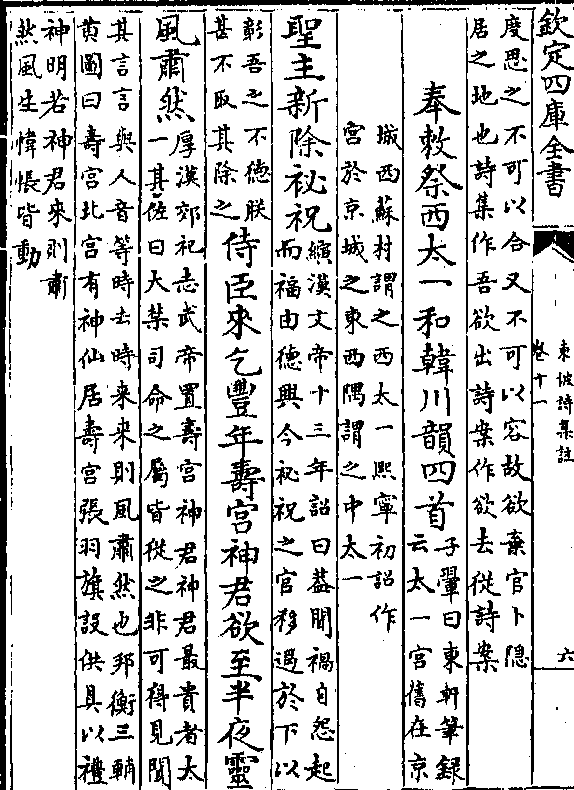 欽定四庫全書
東坡詩集註
卷十一
六
度思之不可以合又不可以容故欲棄官卜隱
居之地也詩集作吾欲出詩案作欲去從詩案
奉敕祭西太一和韓川韻四首
子翬曰東軒筆録
云太一宮舊在京
城西蘇村謂之西太一熙寧初詔作
宮於京城之東西隅謂之中太一
聖主新除祕祝
纘漢文帝十三年詔曰葢聞禍自怨起
而福由德興今祕祝之官移過於下以
彰吾之不德朕
甚不取其除之
侍臣來乞豐年壽宮神君欲至半夜靈
風肅然
厚漢郊祀志武帝置壽宮神君神君最貴者大
一其佐曰大禁司命之屬皆從之非可得見聞
其言言與人音等時去時来来則風肅然也邦衡三輔
黄圖曰壽宮北宮有神仙居壽宮張羽旗設供具以禮
神明若神君来則肅
然風生幃帳皆動